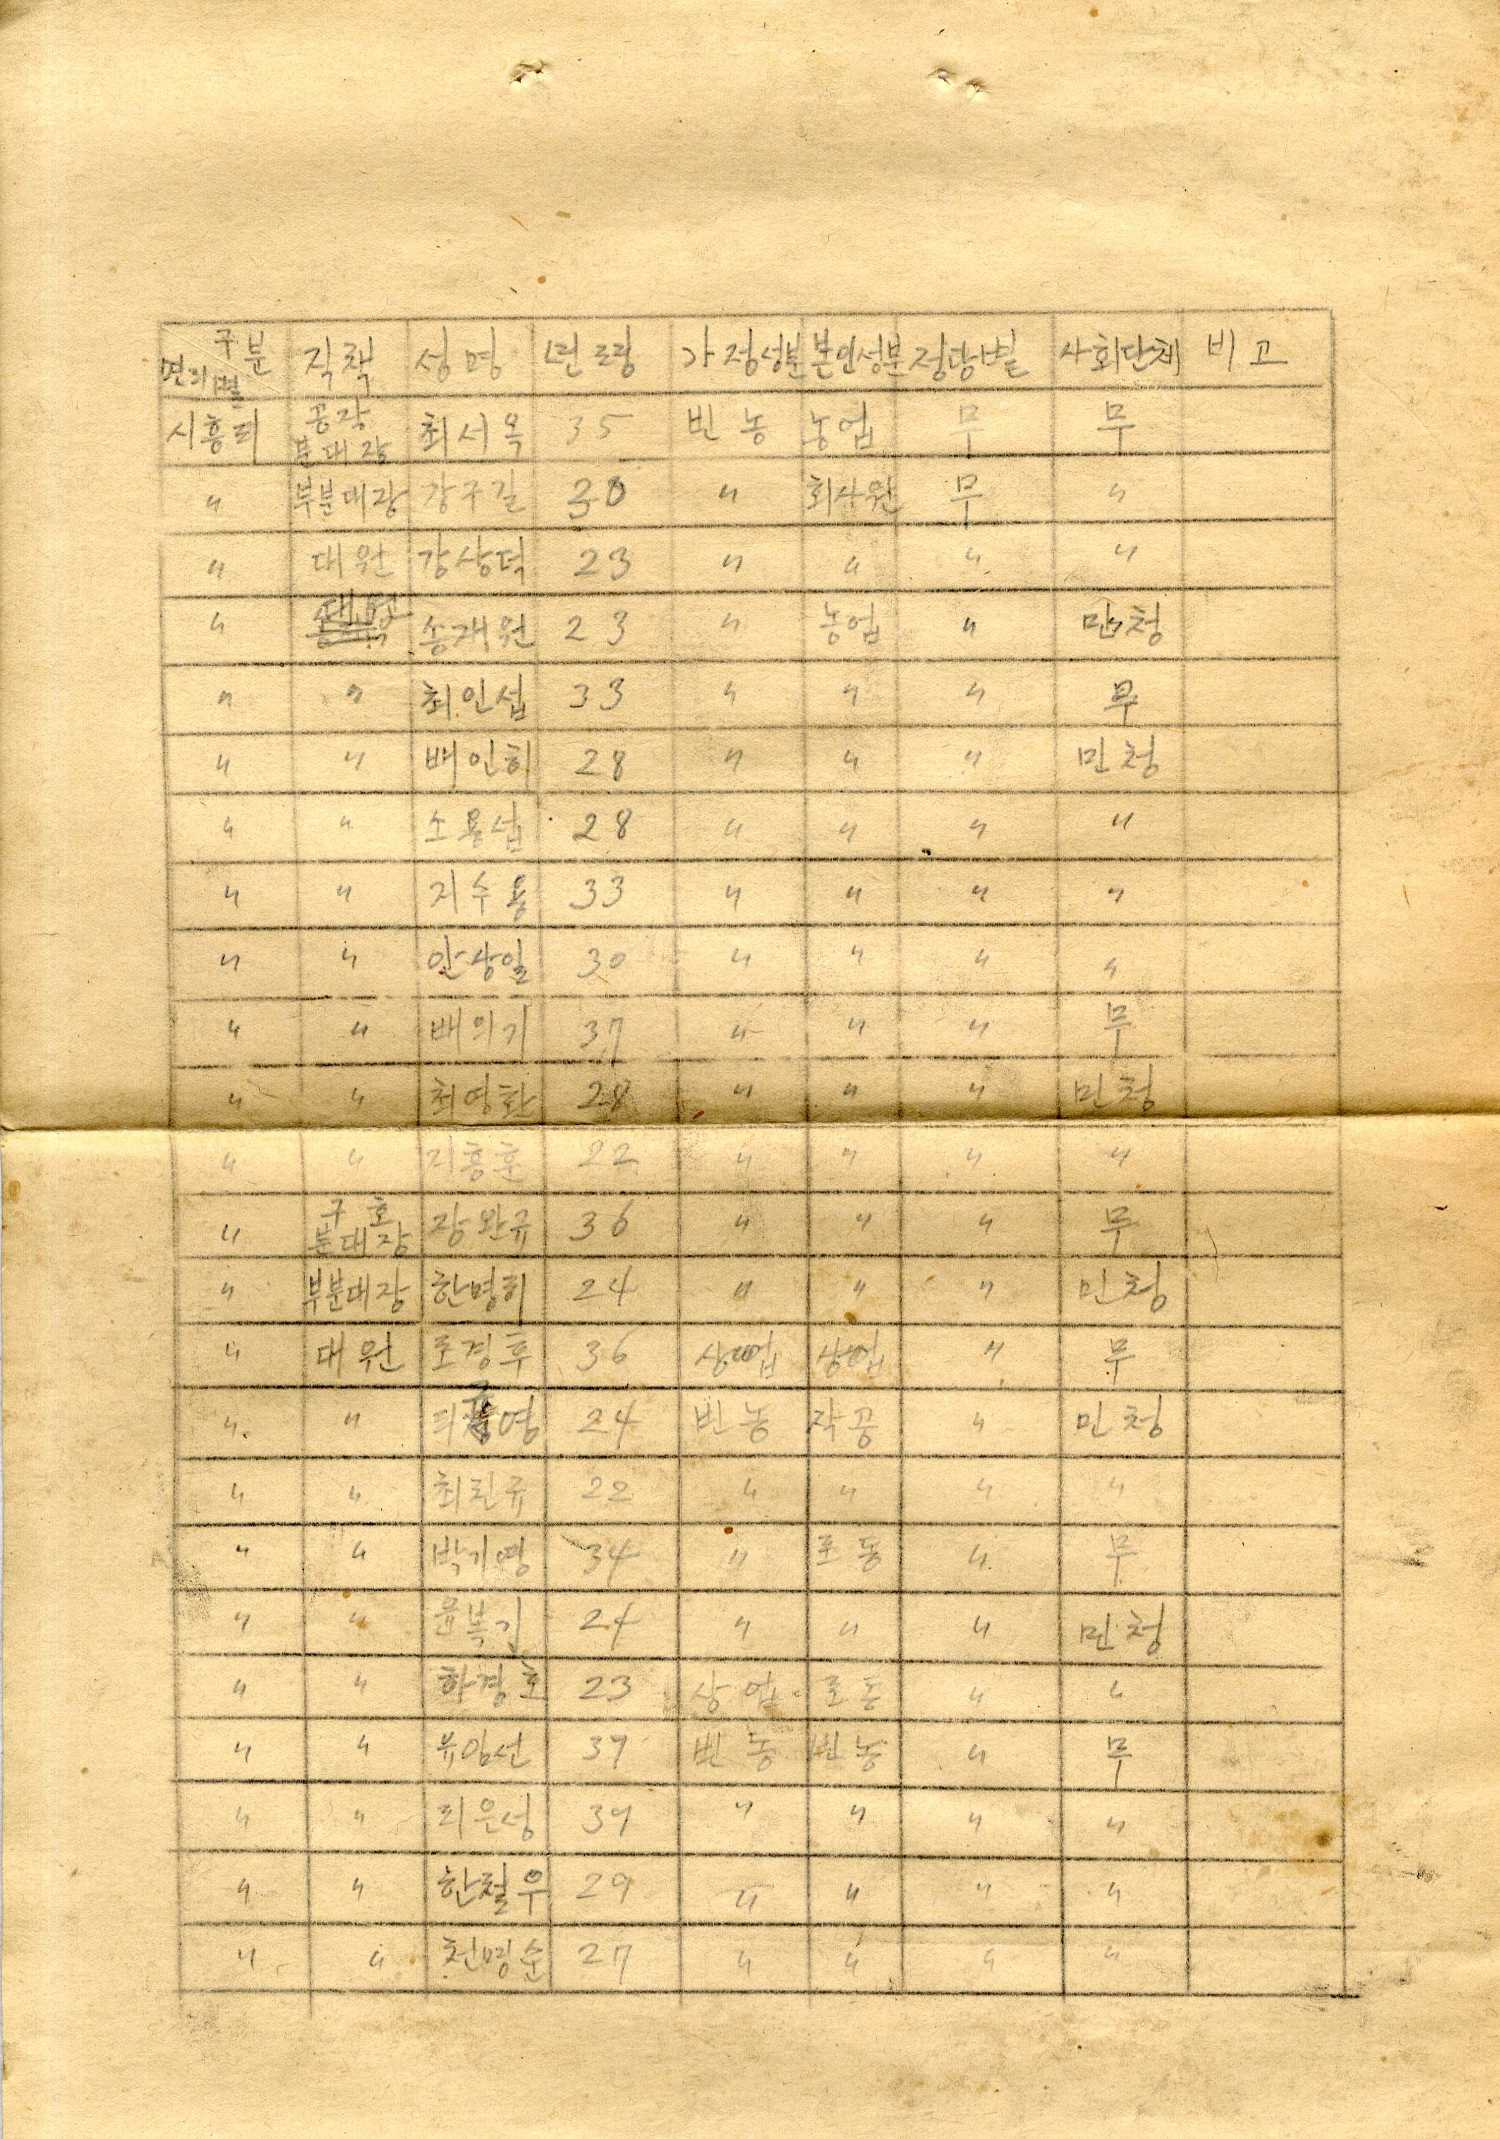 구분 면리별 직책 성명 년령 가정성분 본인성분 정당별 사회단체 비고
시흥리 공작분대장 최서옥 35 빈농 농업 무 무
〃 부분대장 강구길 30 〃 회사원 무 〃
〃 대원 강상덕 23 〃 〃 〃 〃
〃 대원 송재원 23 〃 농업 〃 민청
〃 〃 최인섭 33 〃 〃 〃 무
〃 〃 배인히 28 〃 〃 〃 민청
〃 〃 소용섭 28 〃 〃 〃 〃
〃 〃 지수용 33 〃 〃 〃 〃
〃 〃 안상일 30 〃 〃 〃 〃
〃 〃 배의기 37 〃 〃 〃 무
〃 〃 최영환 28 〃 〃 〃 민청
〃 〃 지흥훈 22 〃 〃 〃 〃
〃 구호분대장 장완규 36 〃 〃 〃 무
〃 부분대장 한명히 24 〃 〃 〃 민청
〃 대원 로경후 36 상업 상업 〃 무
〃 〃 24 빈농 직공 〃 민청
〃 〃 최진규 22 〃 〃 〃 〃
〃 〃 박기영 34 〃 로동 〃 무
〃 〃 윤복길 24 〃 〃 〃 민청
〃 〃 하경호 23 상업 로동 〃 〃
〃 〃 유암선 37 빈농 빈농 〃 무
〃 〃 리은성 39 〃 〃 〃 〃
〃 〃 한철우 29 〃 〃 〃 〃
〃 〃 천명순 27 〃 〃 〃 〃